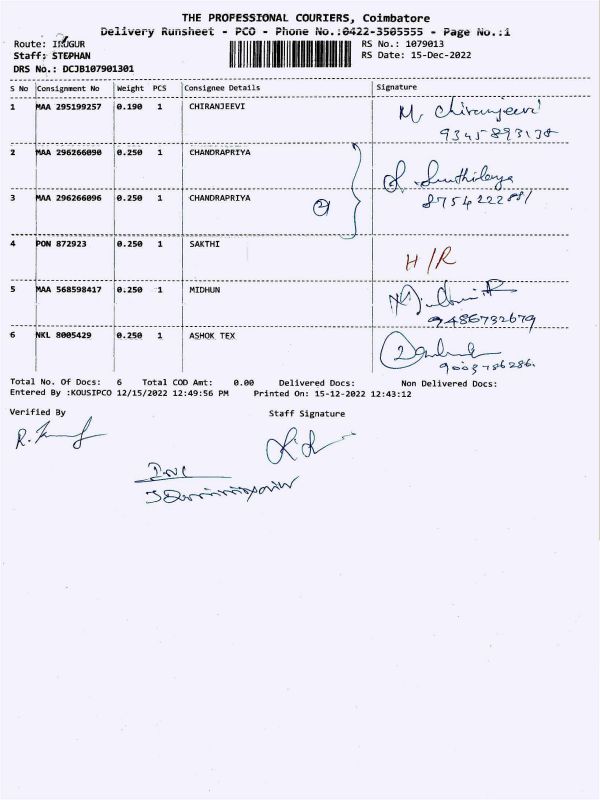 THE PROFESSIONAL COURIERS, Coimbatore
Delivery Runsheet - PCO - Phone No.:0422-3505555 - Page No.:1
Route: IRUGUR
RS No.: 1079013
Staff: STEPHAN
RS Date: 15-Dec-2022
DRS No.: DCJB107901301
S No Consignment No Weight PCS Consignee Details Signature
1 MAA 295199257 0.190 1 CHIRANJEEVI M Chiranjeevi
9345893138
2 MAA 296266090 0.250 1 CHANDRAPRIYA
3 MAA 296266096 0.250 1 CHANDRAPRIYA 2
4 PON 872923 0.250 1 SAKTHI H/R
5 MAA 568598417 0.250 1 MIDHUN
9486732679
6 NKL 8005429 0.250 1 ASHOK TEX
9003786286.
Total No. Of Docs: 6 Total COD Amt: 0.00 Delivered Docs: Non Delivered Docs:
Entered By :KOUSIPCO 12/15/2022 12:49:56 PM Printed On: 15-12-2022 12:43:12
Verified By Staff Signature